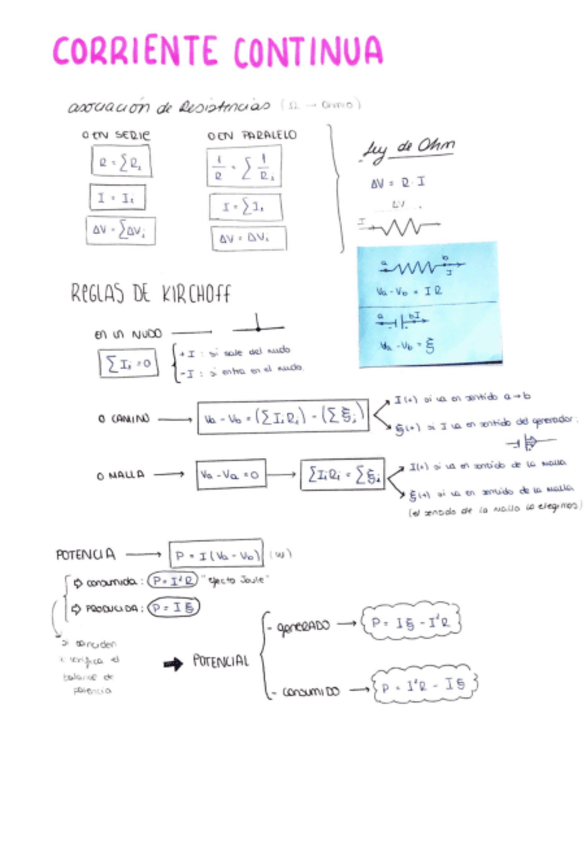 CORRIENTE CONTINUA
asociación de Resistencias (Ω → Ohmio)
O EN SERIE
R = ∑Rᵢ
I = Iᵢ
ΔV = ∑ΔVᵢ
O EN PARALELO
1/R = ∑ 1/Rᵢ
I = ∑Iᵢ
ΔV = ΔVᵢ
Ley de Ohm
ΔV = R · I
ΔV
I
a b
I
Va - Vb = IR
a bI
Va - Vb = ξ
REGLAS DE KIRCHOFF
EN UN NUDO
∑Iᵢ = 0
+I : si sale del nudo
-I : si entra en el nudo.
O CAMINO → Va - Vb = (∑IᵢRᵢ) - (∑ξᵢ)
I(+) si va en sentido a→b
ξ(+) si I va en sentido del generador:
O MALLA → Va - Va = 0 → ∑IᵢRᵢ = ∑ξᵢ
I(+) si va en sentido de la malla
ξ(+) si va en sentido de la malla
(el sentido de la malla lo elegimos)
POTENCIA → P = I(Va - Vb) (W)
consumida: P = I²R "efecto Joule"
PRODUCIDA: P = Iξ
si coinciden
se verifica el
balance de
potencia
➡ POTENCIAL
- GENERADO → P = Iξ - I²R
- CONSUMIDO → P = I²R - Iξ